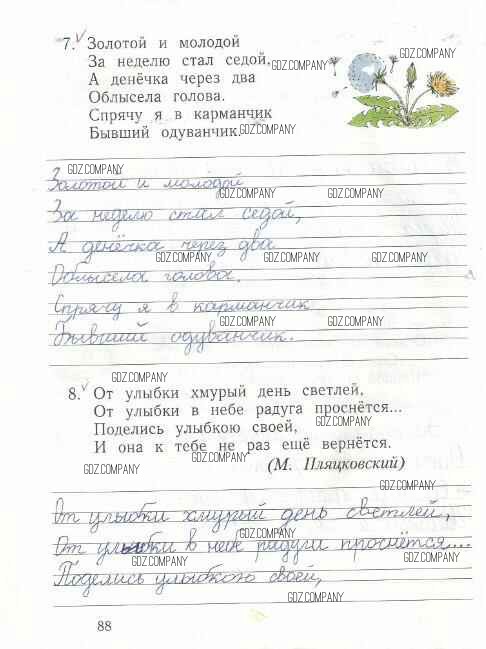 7. Золотой и молодой
За неделю стал седой,
GDZ.COMPANY
GDZ.COMPANY
А денёчка через два
Облысела голова.
Спрячу я в карманчик
Бывший одуванчик.
GDZ.COMPANY
GDZ.COMPANY
Золотой и молодой
GDZ.COMPANY
GDZ.COMPANY
За неделю стал седой,
А денёчка через два
GDZ.COMPANY
GDZ.COMPANY
GDZ.COMPANY
Облысела голова.
Спрячу я в карманчик
GDZ.COMPANY
GDZ.COMPANY
Бывший одуванчик.
GDZ.COMPANY
8. От улыбки хмурый день светлей,
От улыбки в небе радуга проснётся...
Поделись улыбкою своей,
GDZ.COMPANY
И она к тебе не раз ещё вернётся.
GDZ.COMPANY
(М. Пляцковский)
GDZ.COMPANY
GDZ.COMPANY
От улыбки хмурый день светлей,
GDZ.COMPANY
От улыбки в небе радуга проснётся...
GDZ.COMPANY
GDZ.COMPANY
Поделись улыбкою своей,
GDZ.COMPANY
88